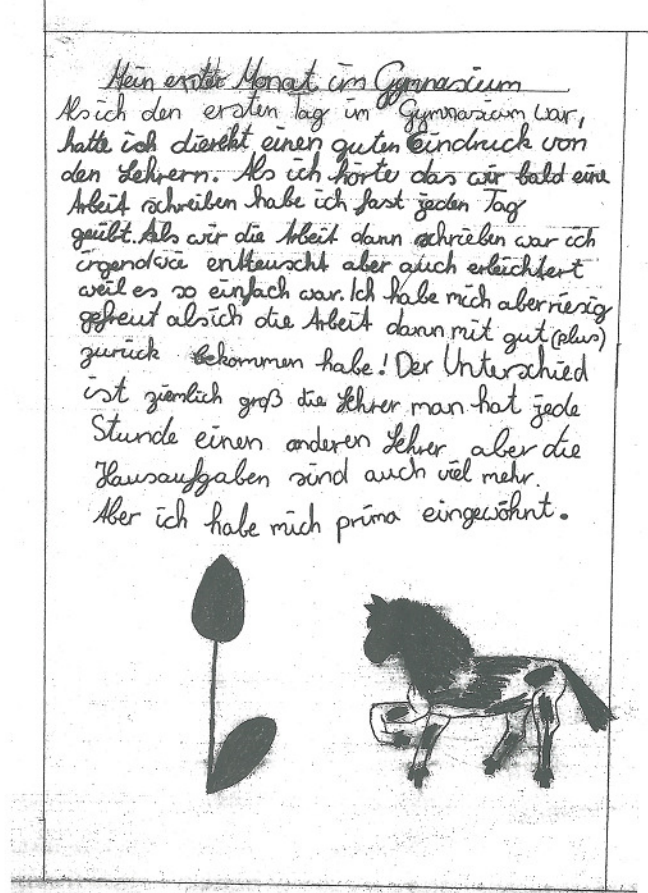 Mein erster Monat im Gymnasium
Als ich den ersten Tag im Gymnasium war,
hatte ich dierekt einen guten Eindruck von
den Lehrern. Als ich hörte das wir bald eine
Arbeit schreiben habe ich fast jeden Tag
geübt. Als wir die Arbeit dann schrieben war ich
irgendwie entteuscht aber auch erleichtert
weil es so einfach war. Ich habe mich aber riesig
gefreut als ich die Arbeit dann mit gut (plus)
zurück bekommen habe! Der Unterschied
ist ziemlich groß die Lehrer man hat jede
Stunde einen anderen Lehrer aber die
Hausaufgaben sind auch viel mehr.
Aber ich habe mich prima eingewöhnt.